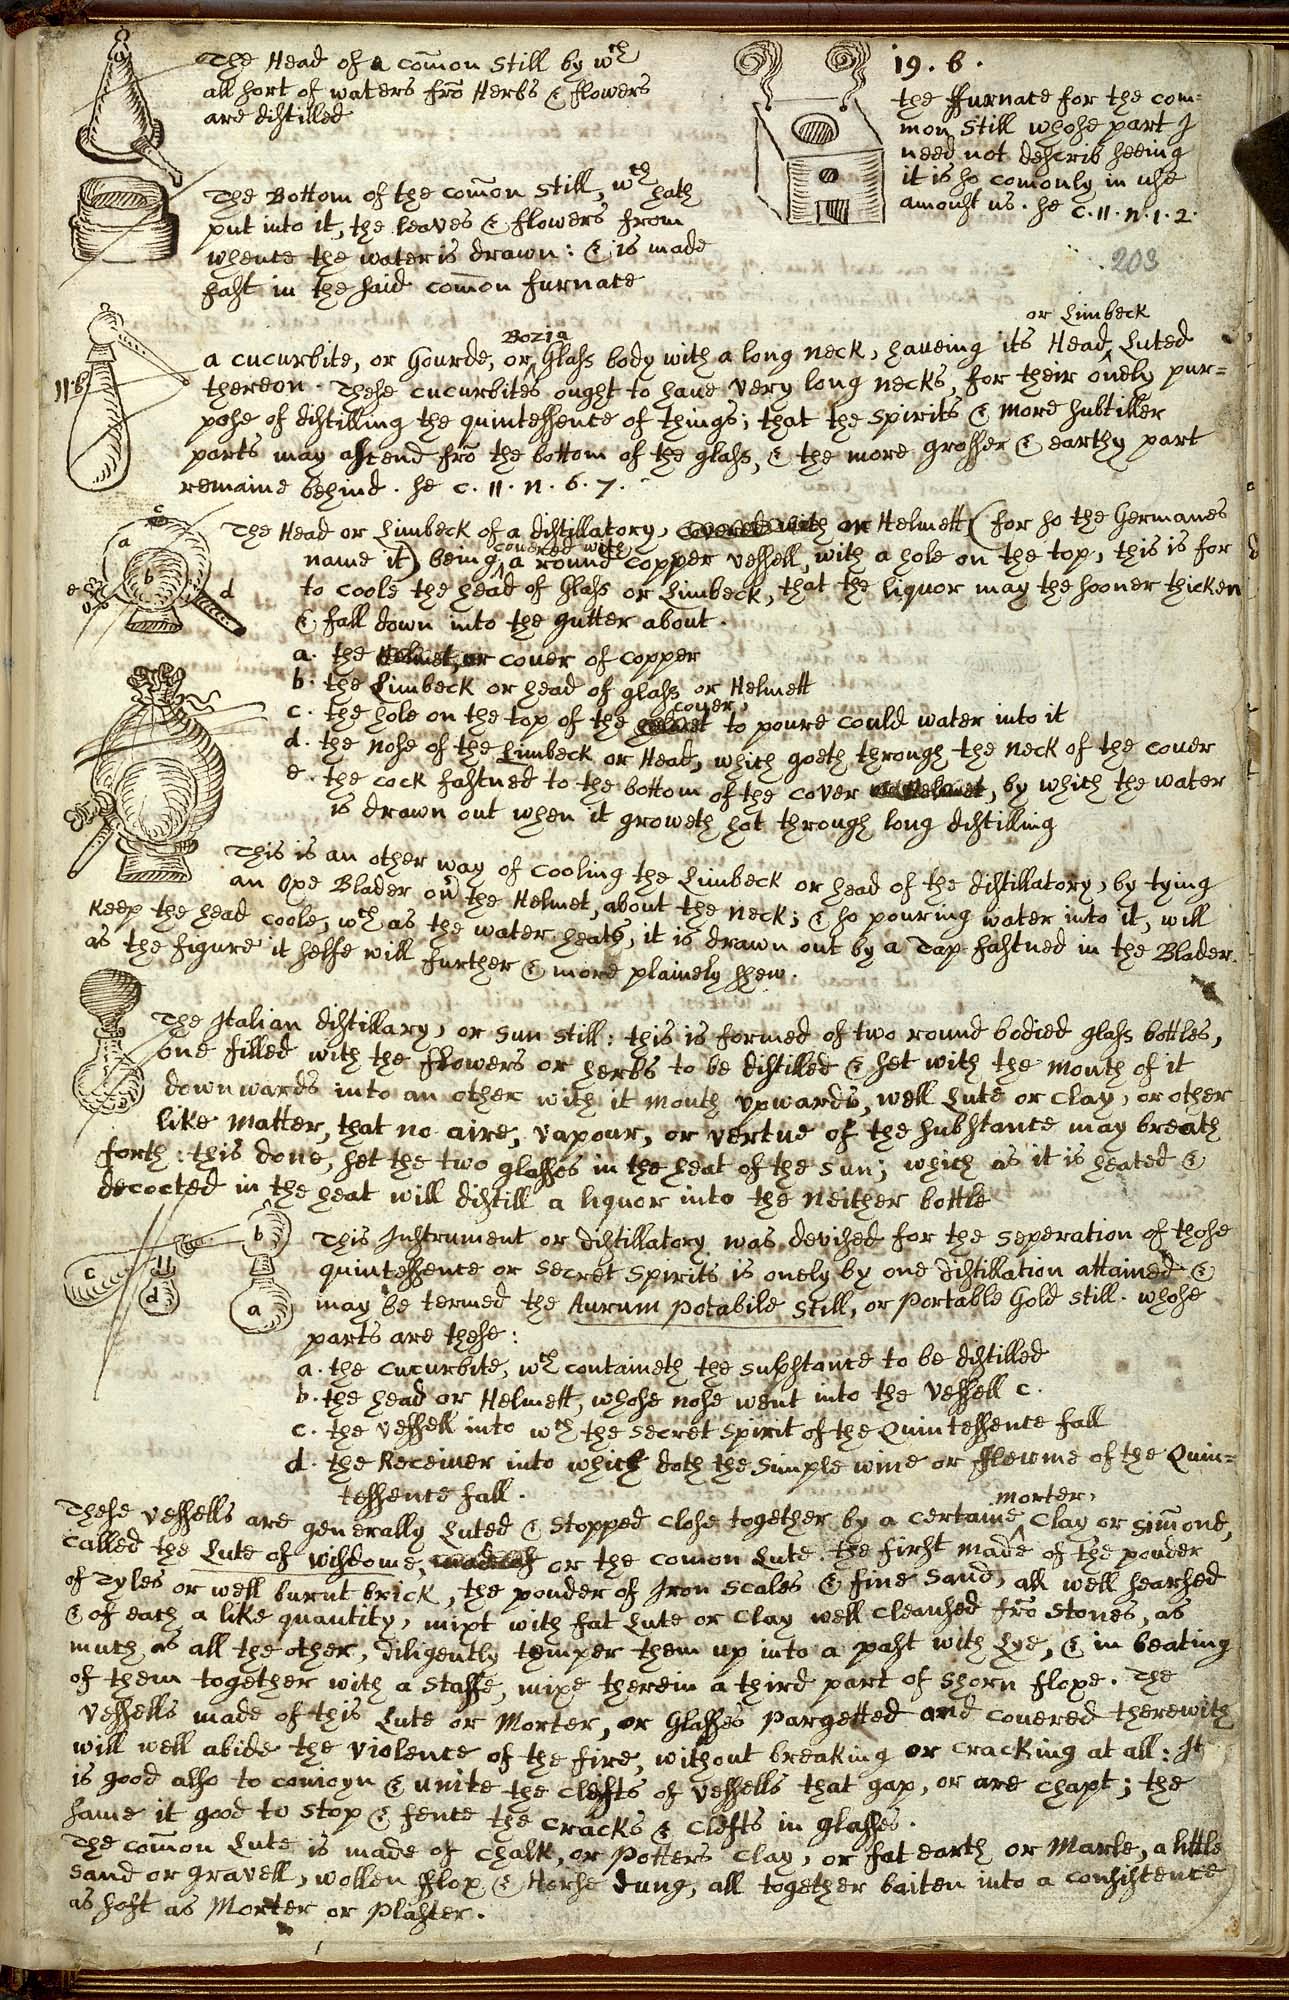 The Head of a com̄on Still by wch
all sort of waters frō Herbs & flowers
are distilled
19. b.
the ffurnace for the com=
mon Still whose part I
need not describ seeing
it is so comonly in use
amoust us. se c. 11. n. 1. 2.
203
The Bottom of the com̄on Still, wch hath
put into it, the leaves & flowers from
whence the water is drawn: & is made
fast in the said com̄on furnace
or Limbeck
Bozia
a cucurbite, or Gourde, or ‸ Glass body with a long neck, haueing its Head ‸ Luted
11 b
thereon. These cucurbites ought to haue very long necks, for their onely pur=
pose of distilling the quintessence of things; that the spirits & more subtiller
parts may ascend frō the bottom of the glass, & the more grosser & earthy part
remaine behind. se c. 11. n. 6. 7.
c
a
b
e
d
The Head or Limbeck of a distillatory, covered with or Helmett (for so the Germanes
covered with
name it) being ‸ a round copper vessell, with a hole on the top, this is for
to coole the head of Glass or Limbeck, that the liquor may the sooner thicken
& fall down into the gutter about.
a. the Helmet, or couer of copper
b. the Limbeck or head of glass or Helmett
couer,
c. the hole on the top of the Helmet to poure could water into it
d. the nose of the Limbeck or Head, which goeth through the neck of the couer
e. the cock fastned to the bottom of the cover or Helmet, by which the water
is drawn out when it groweth hot through long distilling
This is an other way of cooling the Limbeck or head of the distillatory, by tying
an Oxe Blader our the Helmet, about the neck; & so pouring water into it, will
Keep the head coole, wch as the water heats, it is drawn out by a Tap fastned in the Blader.
as the figure it selfe will further & more plainely shew.
The Italian distillary, or Sun Still: this is formed of two round bodied glass bottles,
one filled with the flowers or herbs to be distilled & set with the mouth of it
downwards into an other with it mouth upwards, well Lute or Clay, or other
like matter, that no aire, vapour, or vertue of the substance may breath
forth: this done, set the two glasses in the heat of the sun; which as it is heated &
decocted in the heat will distill a liquor into the neither bottle
b
c
d
a
This Instrument or distillatory was devised for the seperation of those
quintessence or secret spirits is onely by one distillation attained &
may be termed the Aurum potabile Still, or Portable Gold Still. whose
parts are these:
a. the cucurbite, wch containeth the substance to be distilled
b. the head or Helmett, whose nose went into the vessell c.
c. the vessell into wch the secret spirit of the Quintessence fall
d. the Receiuer into which doth the simple wine or fflewme of the Quin=
tessence fall.
morter,
These vessells are generally Luted & stopped close together by a certaine ‸ Clay or Sim̄ond,
called the Lute of wisdome, made of or the comon Lute. the first made of the pouder
of Tyles or well burnt brick, the pouder of Iron scales & fine sand, all well searsed
& of each a like quantity, mixt with fat Lute or Clay well cleansed frō Stones, as
much as all the other, diligently temper them up into a past with Lye, & in beating
of them together with a staffe, mixe therein a third part of shorn flope. The
vessells made of this Lute or Morter, or Glasses Pargetted and couered therewith
will well abide the violence of the fire, without breaking or cracking at all: It
is good also to conioyn & unite the clefts of vessells that gap, or are chapt; the
same it good to stop & fence the cracks & clefts in glasses.
The com̄on Lute is made of chalk, or Potters Clay, or fat earth or Marle, a little
sand or gravell, wollen fflox & Horse dung, all together baiten into a consistence
as soft as Morter or plaster.